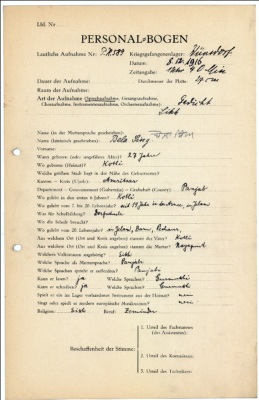 Lfd. Nr.
PERSONAL-BOGEN
Lautliche Aufnahme Nr.: P.K. 589 Kriegsgefangenenlager: Wünsdorf
Datum: 8.12.1916
Zeitangabe:
Dauer der Aufnahme: Durchmesser der Platte:
Raum der Aufnahme:
Art der Aufnahme (Sprechaufnahme, Gesangsaufnahme, Gedicht
Choraufnahme, Instrumentenaufnahme, Orchesteraufnahme):
Name (in der Muttersprache geschrieben):
Name (lateinisch geschrieben): Singh
Vorname:
Wann geboren (oder ungefähres Alter)? 27 Jahre
Wo geboren (Heimat)? Kotli
Welche größere Stadt liegt in der Nähe des Geburtsortes?
Kanton — Kreis (Ujedz): Amritsar
Departement — Gouvernement (Gubernija) — Grafschaft (County): Panjab
Wo gelebt in den ersten 6 Jahren? Kotli
Wo gelebt vom 7. bis 20. Lebensjahr?
Was für Schulbildung? Dorfschule
Wo gelebt vom 20. Lebensjahr?
Aus welchem Ort (Ort und Kreis angeben) stammt der Vater? Kotli
Aus welchem Ort (Ort und Kreis angeben) stammt die Mutter?
Welchem Volksstamm angehörig? Sikh
Welche Sprache als Muttersprache? Panjabi
Welche Sprachen spricht er außerdem? Panjabi
Kann er lesen? ja Welche Sprachen? Gurmukhi
Kann er schreiben? ja Welche Sprachen? Gurmukhi
Spielt er ein im Lager vorhandenes Instrument aus der Heimat? nein
Singt oder spielt er moderne europäische Musikweisen? nein
Religion: Sikh Beruf: Zemindar
Beschaffenheit der Stimme:
1. Urteil des Fachmannes
(des Assistenten):
2. Urteil des Kommissars:
3. Urteil des Technikers: